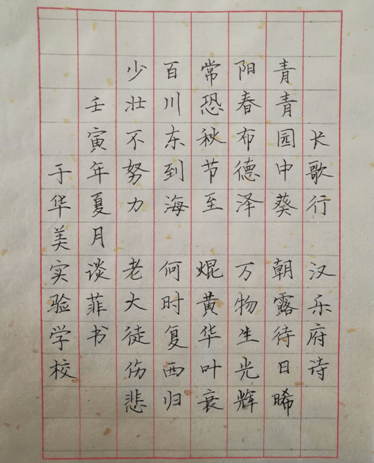 长歌行 汉乐府诗
青青园中葵 朝露待日晞
阳春布德泽 万物生光辉
常恐秋节至 焜黄华叶衰
百川东到海 何时复西归
少壮不努力 老大徒伤悲
壬寅年夏月 谈菲书
于华美实验学校